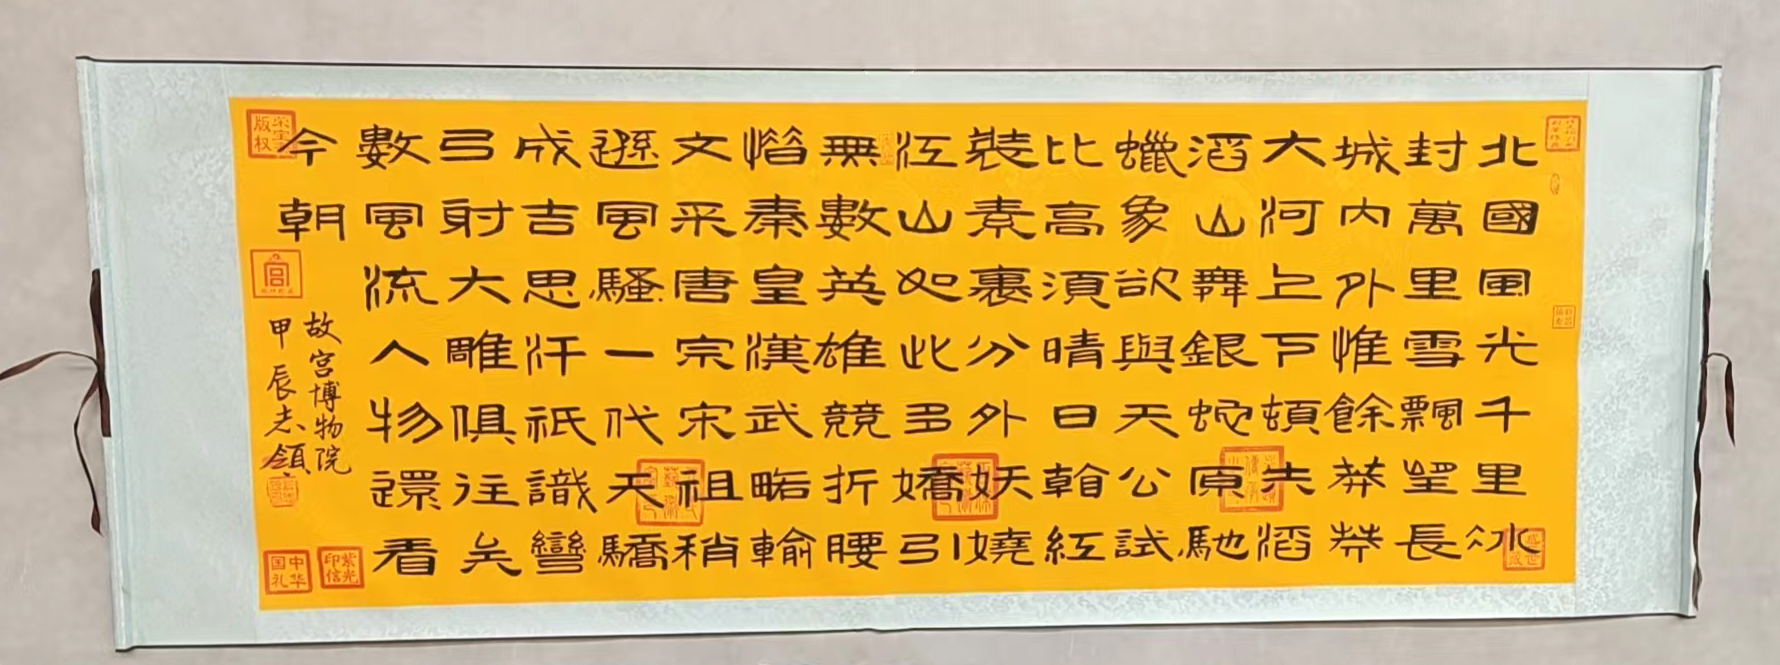 北國風光千里冰
封萬里雪飄望長
城內外惟餘莽莽
大河上下頓失滔
滔山舞銀蛇原馳
蠟象欲與天公試
比高須晴日翰紅
裝素裹分外妖嬈
江山如此多嬌引
無數英雄競折腰
惜秦皇漢武略輸
文采唐宗宋祖稍
遜風騷一代天驕
成吉思汗祇識彎
弓射大雕俱往矣
數風流人物還看
今朝
故宮博物院
甲辰志領
版权
紫光印信
中华国礼